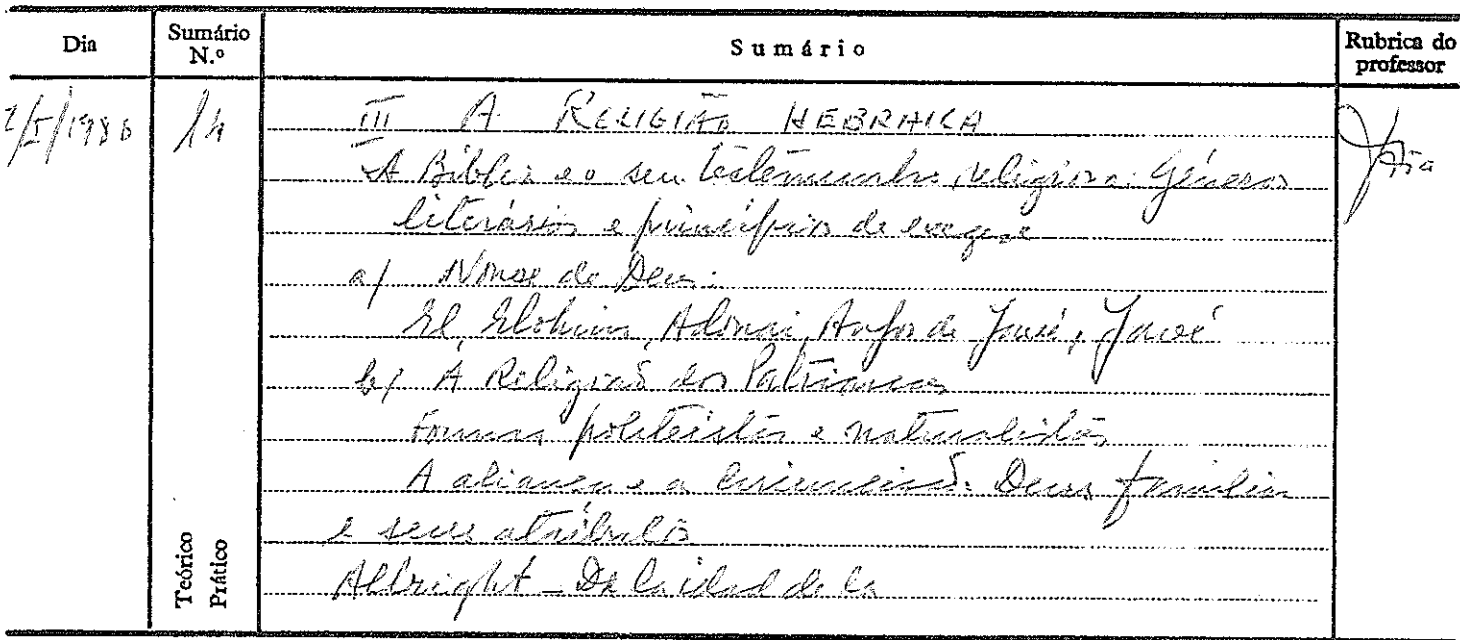 Dia Sumário N.º Sumário Rubrica do professor
14
III A RELIGIÃO HEBRAICA
A Bíblia e o seu testemunho religioso. Géneros
literários e princípios de exegese
a) Nome de Deus:
El, Elohim, Adonai, Anjo de Javé, Javé
b) A Religião dos Patriarcas
Formas politeístas e naturalistas
A aliança e a circuncisão. Deus familiar
e seus atributos
Albright - De la idad de la
Teórico
Prático